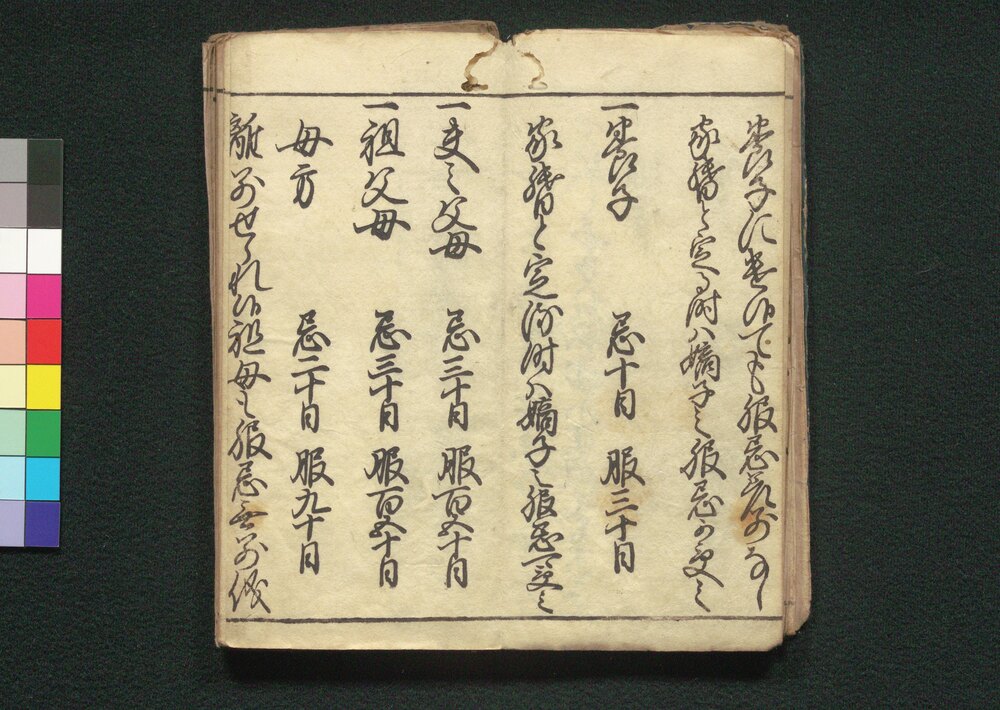 養子に遣候ても服忌差別なし
家督と定る時ハ嫡子之服忌可受之
一養子 忌十日 服三十日
家督と定る時ハ嫡子之服忌可受之
一夫之父母 忌三十日 服百五十日
一祖父母 忌三十日 服百五十日
母方 忌二十日 服九十日
離別せられ候祖母も服忌無別儀